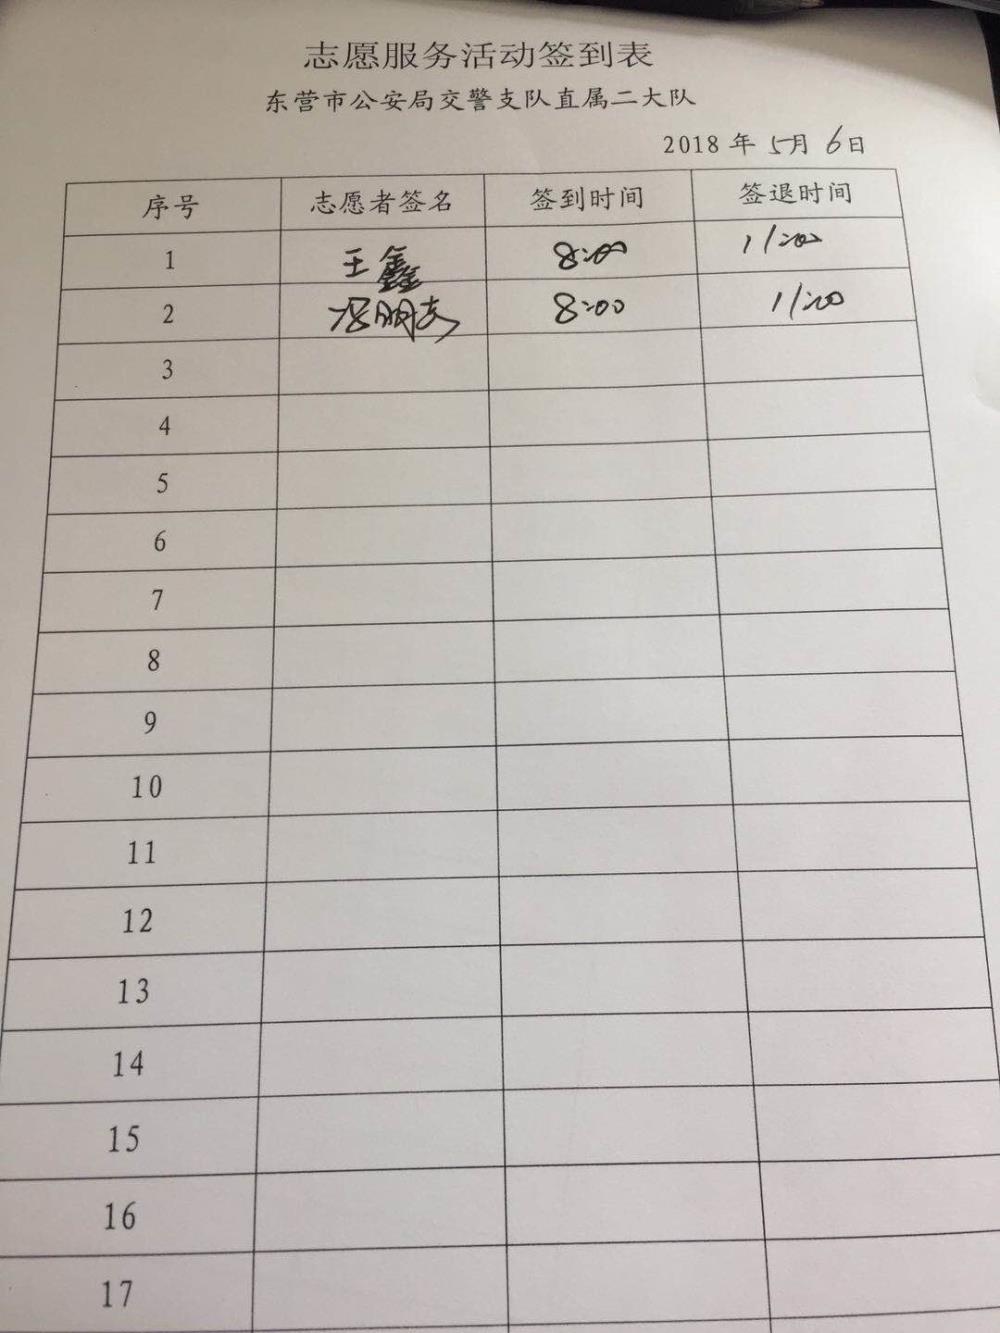 志愿服务活动签到表
东营市公安局交警支队直属二大队
2018 年 5月 6日
序号 志愿者签名 签到时间 签退时间
1 王鑫 8:00 11:00
2 8:00 11:00
3
4
5
6
7
8
9
10
11
12
13
14
15
16
17